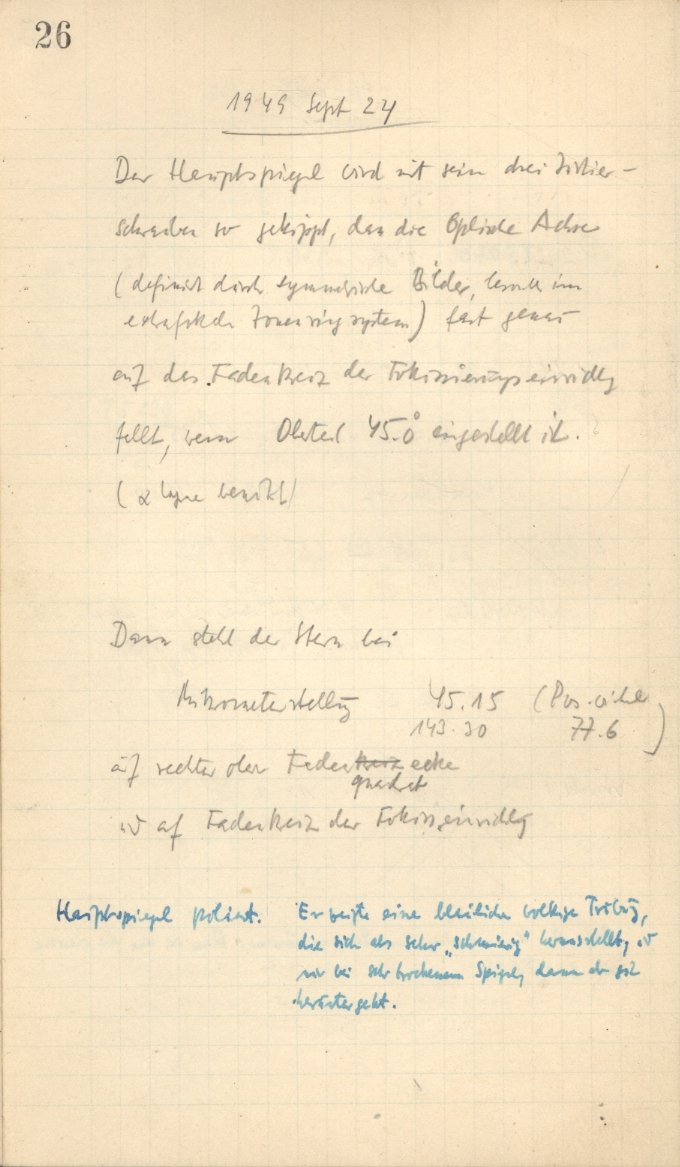 26
1949 Sept 24
Der Hauptspiegel wird mit sein drei Justier-
schrauben so gekippt, dass die Optische Achse
(definiert durch symmetrische Bilder, besonders im
extrafokalen Zonenringsystem) fast genau
auf das Fadenkreuz der Fokussierungseinrichtg
fällt, wenn Oberteil 45.0° eingestellt ist.
(α Lyrae benützt)
Dann steht der Stern bei
Mikrometerstellung 45.15 (Pos.winkel
143.30 77.6)
auf rechter oberer Fadenkreuzecke
quadrat
und auf Fadenkreuz der Fokuss.einrichtg
Hauptspiegel poliert. Er zeigte eine bläuliche wolkige Trübung,
die sich als sehr „schmierig" herausstellt, und
nur bei sehr trockenem Spiegel, dann aber gut
heruntergeht.